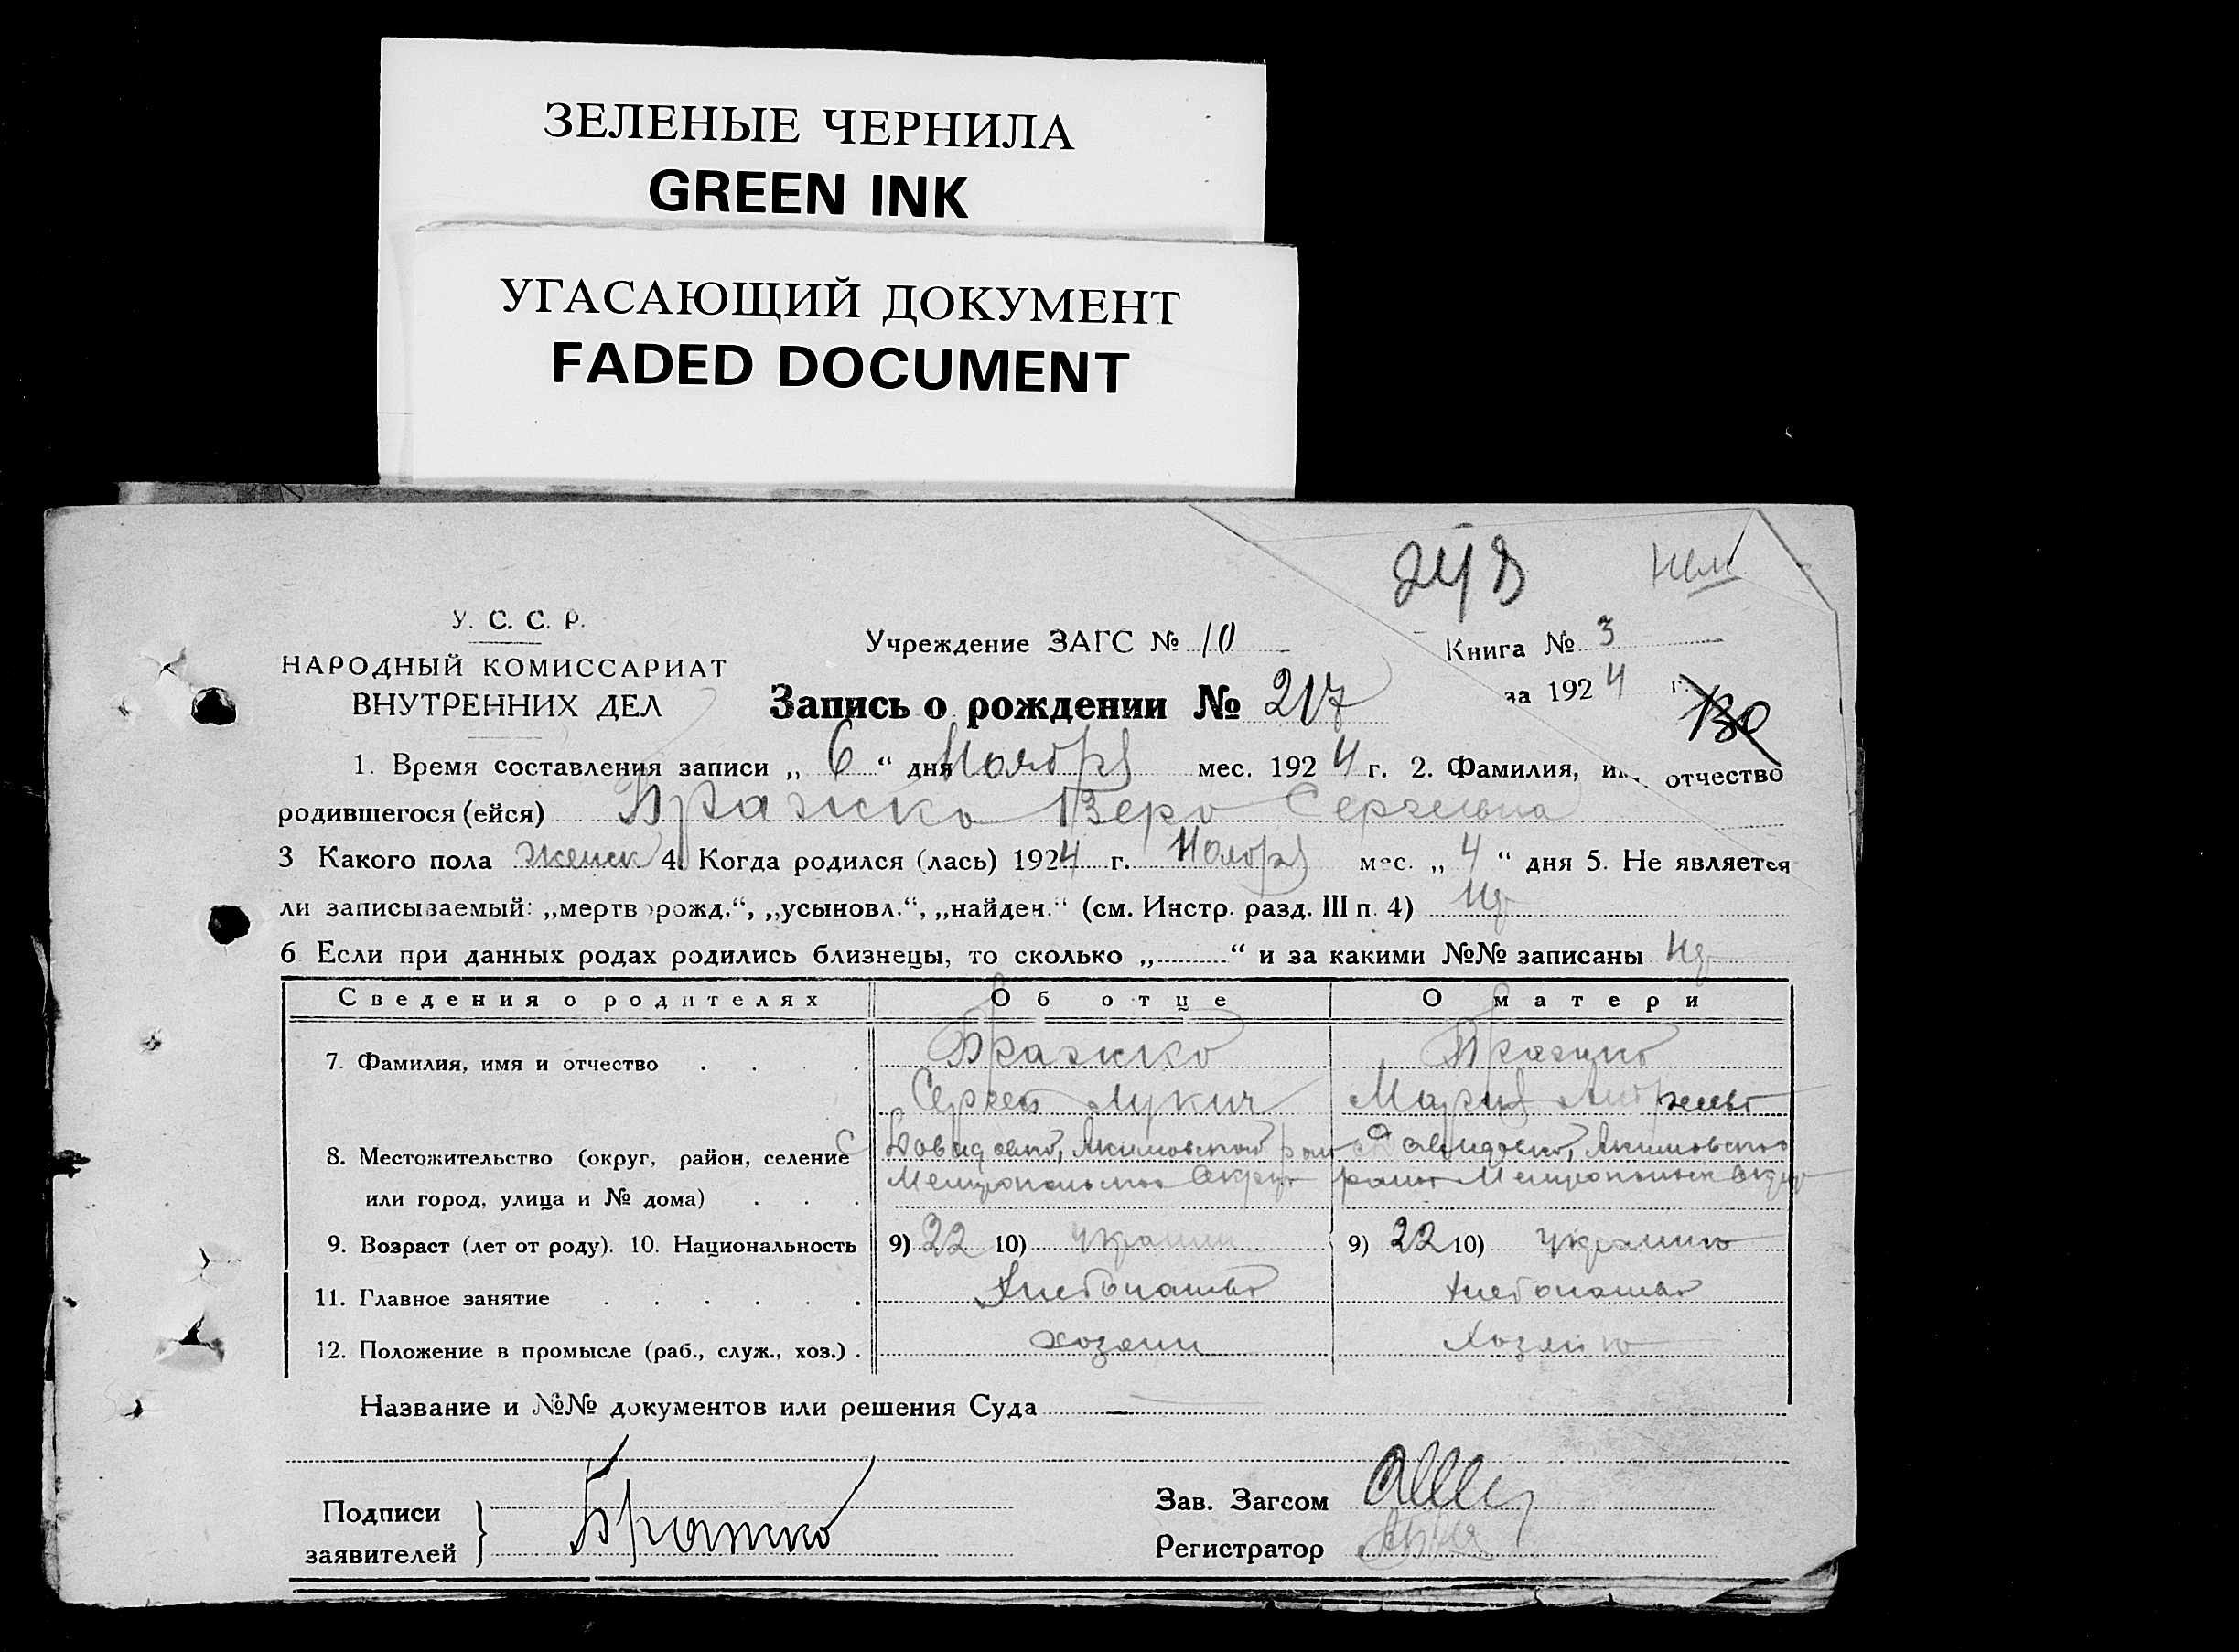 ЗЕЛЕНЫЕ ЧЕРНИЛА
GREEN INK
УГАСАЮЩИЙ ДОКУМЕНТ
FADED DOCUMENT
У. С. С. Р.
НАРОДНЫЙ КОМИССАРИАТ
ВНУТРЕННИХ ДЕЛ
Учреждение ЗАГС № 10
Книга № 3
за 1924 г.
130
Запись о рождении № 217
1. Время составления записи „ 6 “ дня Ноября мес. 1924 г. 2. Фамилия, им. отчество
родившегося (ейся) Бражко Вера Сергеевна
3 Какого пола женск 4. Когда родился (лась) 1924 г. Ноября мес. „ 4 “ дня 5. Не является
ли записываемый: „мертворожд.“, „усыновл.“, „найден.“ (см. Инстр. разд. III п. 4)
6 Если при данных родах родились близнецы, то сколько „ “ и за какими №№ записаны
Сведения о родителях Об отце О матери
7. Фамилия, имя и отчество Бражко Бражко
Сергей Лукич Мария
8. Местожительство (округ, район, селение
или город, улица и № дома)
9. Возраст (лет от роду). 10. Национальность 9) 22 10) 9) 22 10)
11. Главное занятие
12. Положение в промысле (раб., служ., хоз.)
Название и №№ документов или решения Суда
Подписи
заявителей
Бражко
Зав. Загсом
Регистратор